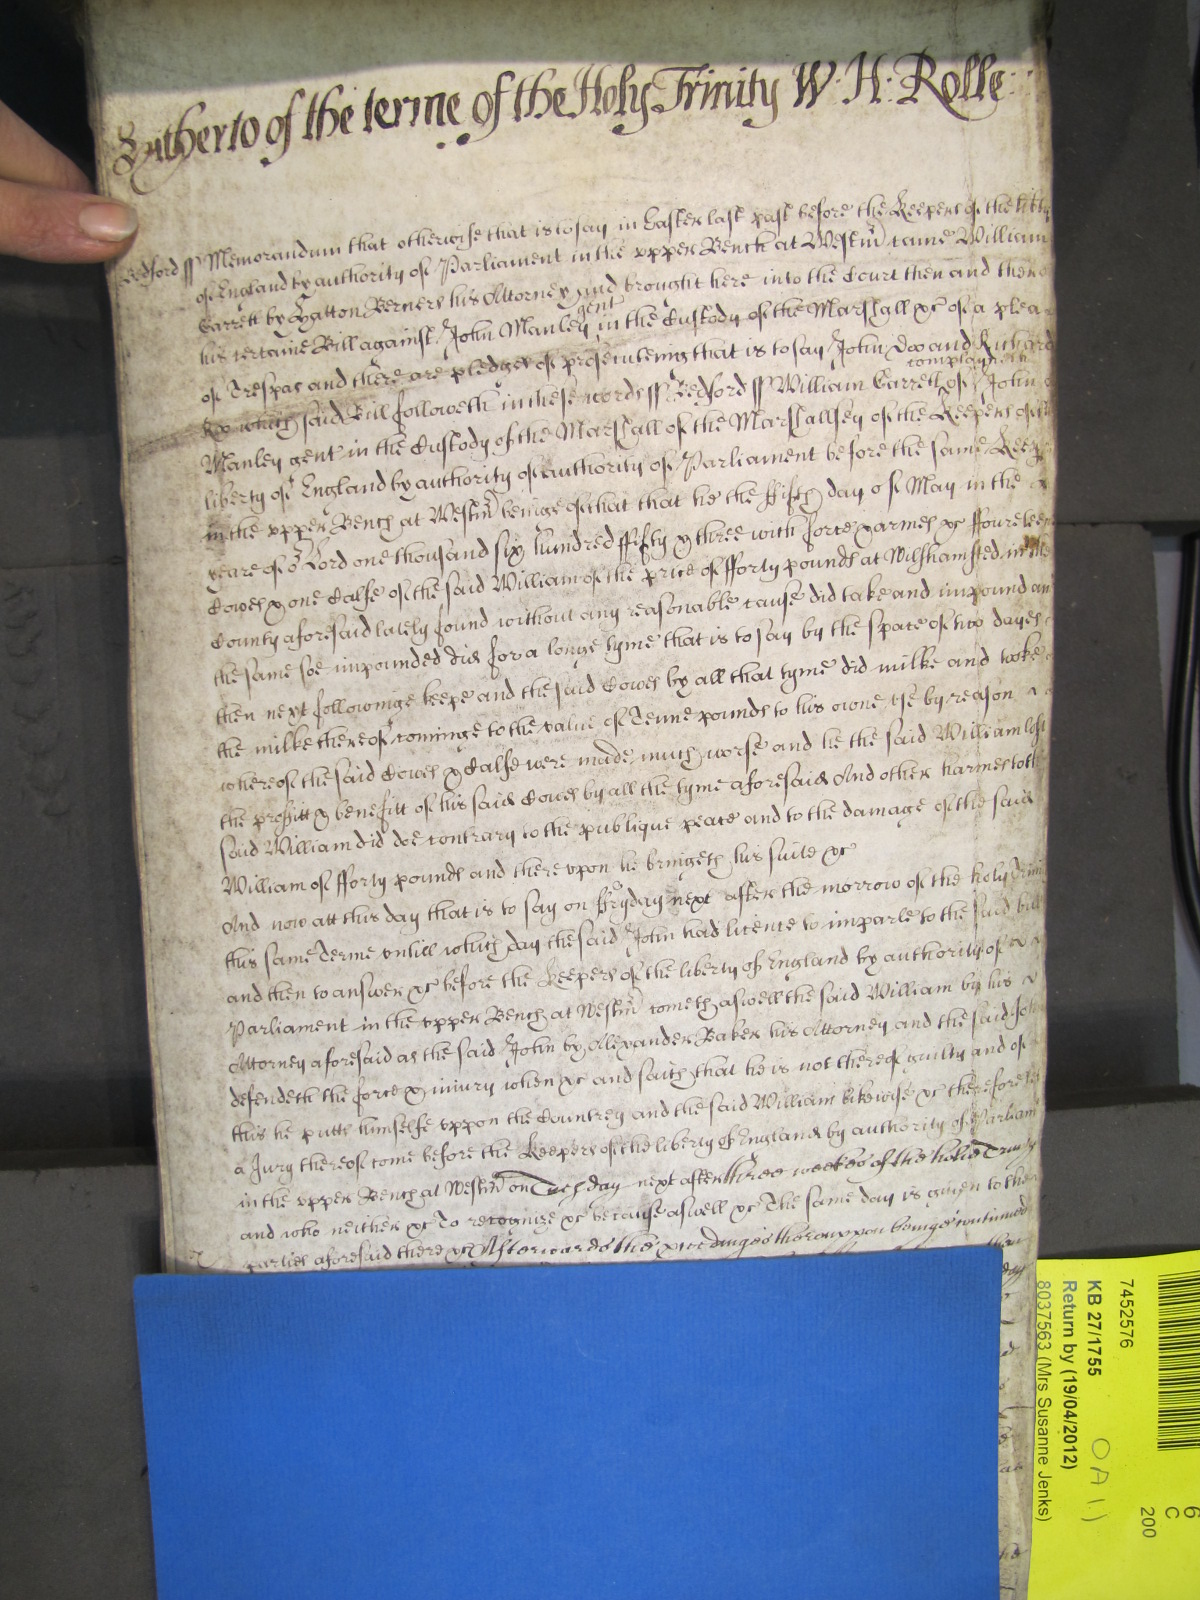 Hitherto of the terme of the Holy Trinity W: H: Rolle:
Bedford ss Memorandum that otherwise that is to say in Easter last past before the Keepers of the lib
of England by authority of Parliament in the vpper Bench at Westm came William
Garrett by Hatton Berners his Attorney and brought here into the Court then and there
gent
his certaine Bill against John Manley in the Custody of the Marshall &c of a plea
of Trespas and there are pledges of prosecuteing that is to say John Doo and Richard
complayneth
which said Bill followeth in these words ss Bedford ss William Garrett of John
Manley gent in the Custody of the Marshall of the Marshallsey of the Keepers of the
liberty of England by authority of authority of Parliament before the same Keep
in the vpper Bench at Westm beinge of that that he the ffifth day of May in the
yeare of or Lord one thousand six hundred ffifty & three with force & armes &c ffoureteen
Cowes & one Calfe of the said William of the price of fforty pounds at Wilshamsted in the
County aforesaid lately found without any reasonable cause did take and impound an
the same soe impounded did for a longe tyme that is to say by the space of two dayes
then next followinge keepe and the said Cowes by all that tyme did milke and tooke
the milke thereof cominge to the value of Tenne pounds to his owne vse by reason
whereof the said Cowes & Calfe were made much worse and he the said William lost
the proffitt & benefitt of his said Cowes by all the tyme aforesaid And other harmes to the
said William did doe contrary to the publique peace and to the damage of the said
William of fforty pounds and there vpon he bringeth his suite &c
And now att this day that is to say on ffryday next after the morrow of the holy Trini
this same Terme vntill which day the said John had licence to imparle to the said bill
and then to answer &c before the Keepers of the liberty of England by authority of
Parliament in the vpper Bench at Westm cometh aswell the said William by his
Attorney aforesaid as the said John by Alexander Baker his Attorney and the said John
defendeth the force & iniury when &c and saith that he is not thereof guilty and of
this he putts himselfe vppon the Countrey and the said William likewise &c therefore let
a Jury thereof come before the Keepers of the liberty of England by authority of Parliam
in the vpper Bench at Westm on Tuesday next after three weekes of the holie Trinity
and who neither &c To recognize &c because aswell &c The same day is given to the
parties aforesaid there &c Afterwards the proceedinges therevppon beinge continued
7452576
KB 27/1755
Return by (19/04/2012)
8037563 (Mrs Susanne Jenks)
6
C
200